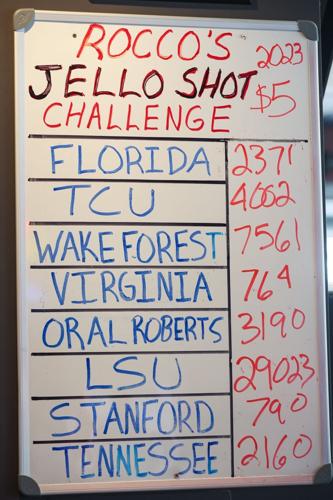 ROCCO'S 2023
JELLO SHOT $5
CHALLENGE
FLORIDA 2371
TCU 4062
WAKE FOREST 7561
VIRGINIA 764
ORAL ROBERTS 3190
LSU 29023
STANFORD 790
TENNESSEE 2160